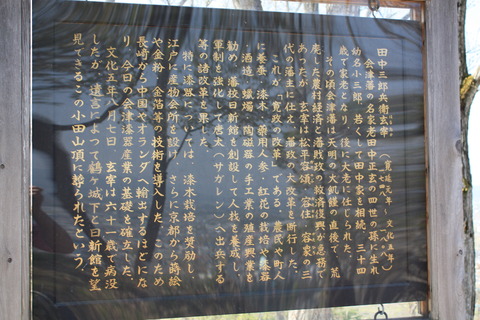 田中三郎兵衛玄宰
会津藩の名家老田中正玄の四世の孫に生れ
幼名小三郎 若くして田中家を相続、三十四
歳で家老となり、後に大老に任じられた。
その頃会津藩は天明の大飢饉の直後で、荒
廃した農村経済と藩財政の救済復興が急務で
あったが、玄宰は松平容頌、容住、容衆の三
代の藩主に仕え、藩政の大改革を断行した。
これが「寛政の改革」である。農民や町人
に養蚕、漆木、薬用人参、紅花の栽培や漆器
・酒造・蠟燭・陶磁器の手工業の殖産興業を
勧め、藩校日新館を創設して人材を養成し、
軍制を強化して唐太（サガレン）へ出兵する
等の諸改革を果した。
特に漆器については、漆木栽培を奨励し、
江戸に産物会所を設け、さらに京都から蒔絵
や金粉、金箔等の技術を導入した。このため
長崎から中国やオランダへ輸出するほどにな
り、今日の会津漆器産業の基礎を確立した。
文化五年八月七日、玄宰は六十一歳で病没
したが、遺言によって鶴ヶ城下と日新館を望
見できるこの小田山頂に葬られたという。